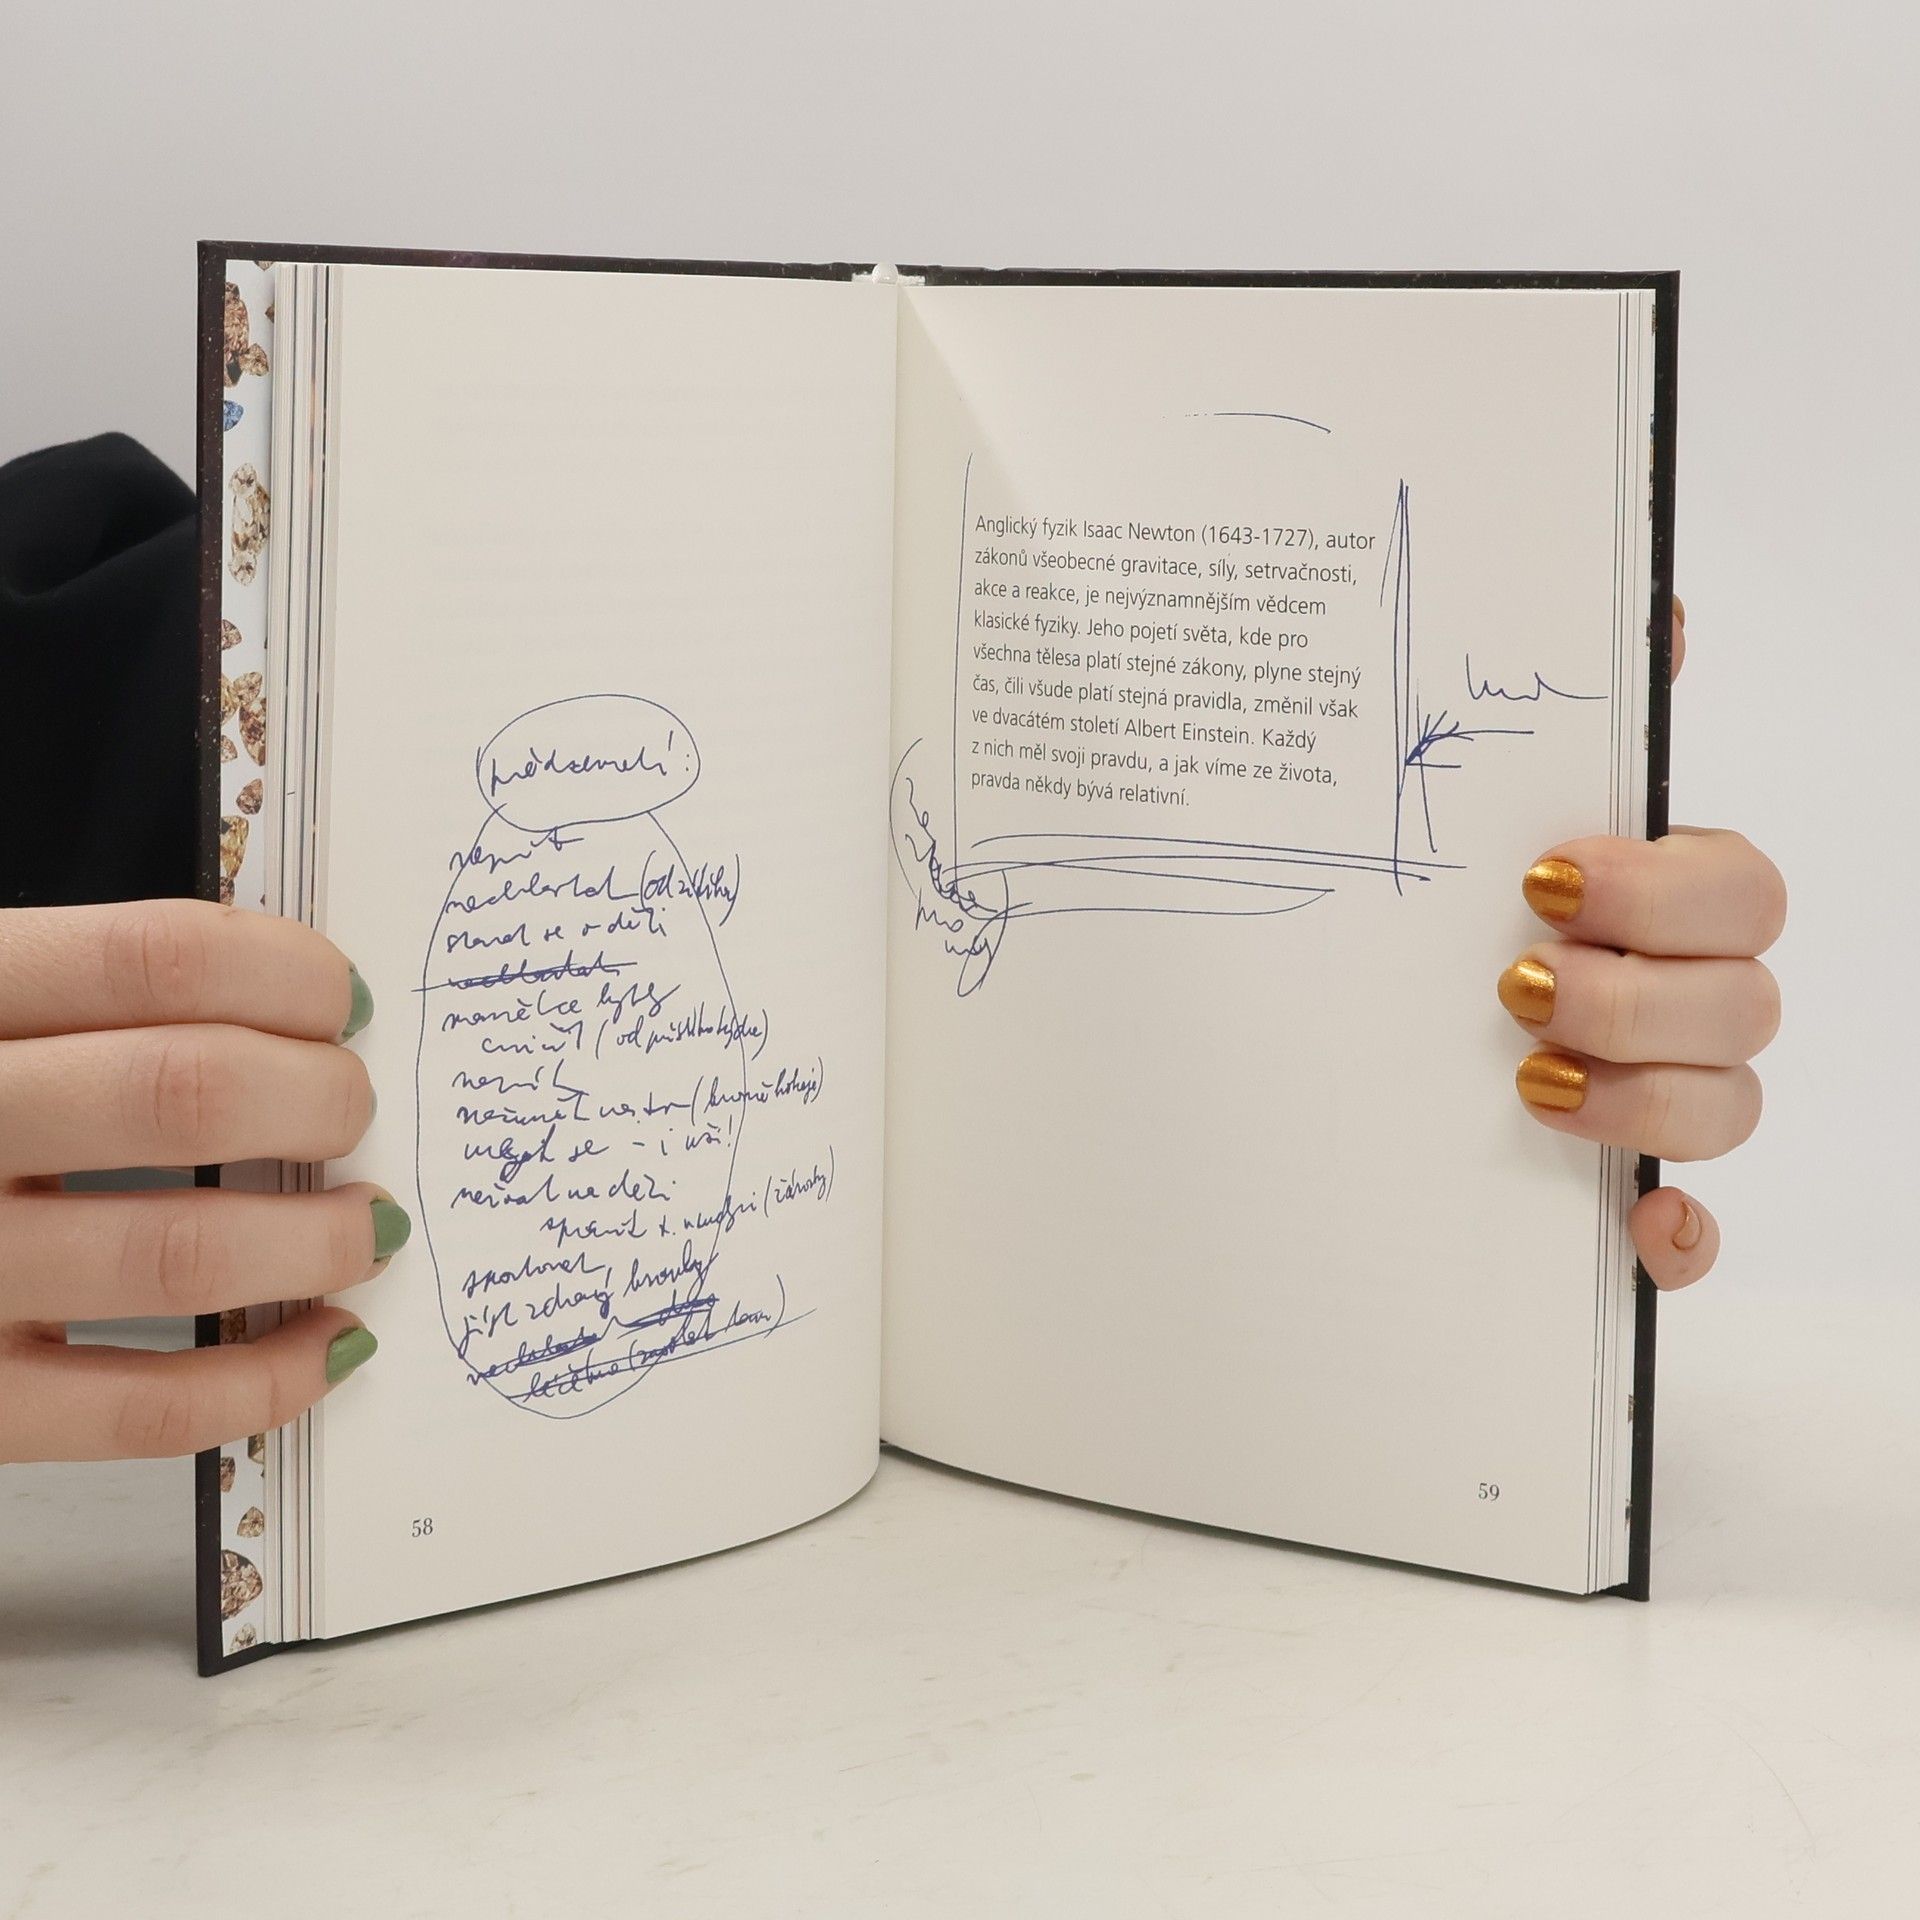 předsevzetí:
nepít
nechlastat (od zítřka)
starat se o děti
manželce kytky
(od příštího týdne)
nepít
nečumět na (kromě hokeje)
se - i uši!
neřvat na děti
sportovat,
jíst zdravý
58
Anglický fyzik Isaac Newton (1643-1727), autor
zákonů všeobecné gravitace, síly, setrvačnosti,
akce a reakce, je nejvýznamnějším vědcem
klasické fyziky. Jeho pojetí světa, kde pro
všechna tělesa platí stejné zákony, plyne stejný
čas, čili všude platí stejná pravidla, změnil však
ve dvacátém století Albert Einstein. Každý
z nich měl svoji pravdu, a jak víme ze života,
pravda někdy bývá relativní.
59